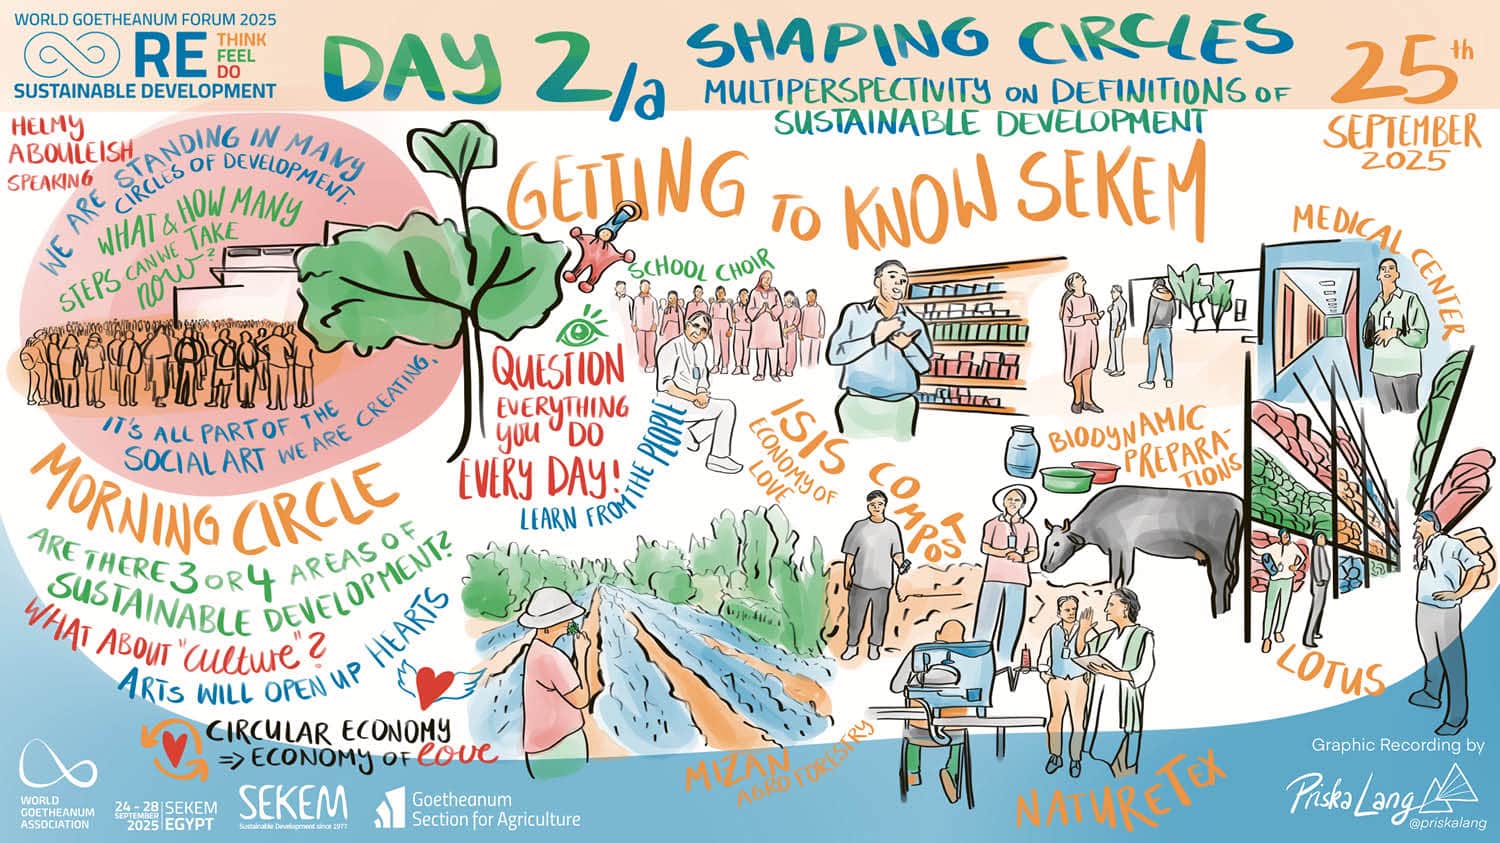 WORLD GOETHEANUM FORUM 2025
RE
THINK
FEEL
DO
SUSTAINABLE DEVELOPMENT
DAY 2/a
SHAPING CIRCLES
MULTIPERSPECTIVITY ON DEFINITIONS OF
SUSTAINABLE DEVELOPMENT
25th
SEPTEMBER
2025
HELMY
ABOULEISH
SPEAKING
WE ARE STANDING IN MANY
CIRCLES OF DEVELOPMENT.
WHAT & HOW MANY
STEPS CAN WE TAKE
now?
IT'S ALL PART OF THE
SOCIAL ART WE ARE CREATING.
MORNING CIRCLE
ARE THERE 3 OR 4 AREAS OF
SUSTAINABLE DEVELOPMENT?
WHAT ABOUT "culture"?
ARTS WILL OPEN UP HEARTS
CIRCULAR ECONOMY
=> ECONOMY OF love
GETTING TO KNOW SEKEM
SCHOOL CHOIR
QUESTION
EVERYTHING
YOU DO
EVERY DAY!
LEARN FROM THE PEOPLE
ISIS
ECONOMY OF
LOVE
COMPOST
MEDICAL CENTER
BIODYNAMIC
PREPARA-
TIONS
LOTUS
MIZAN
AGROFORESTRY
NATURETEX
WORLD
GOETHEANUM
ASSOCIATION
24 - 28
SEPTEMBER
2025
SEKEM
EGYPT
SEKEM
Sustainable Development since 1977
Goetheanum
Section for Agriculture
Graphic Recording by
Priska Lang
@priskalang